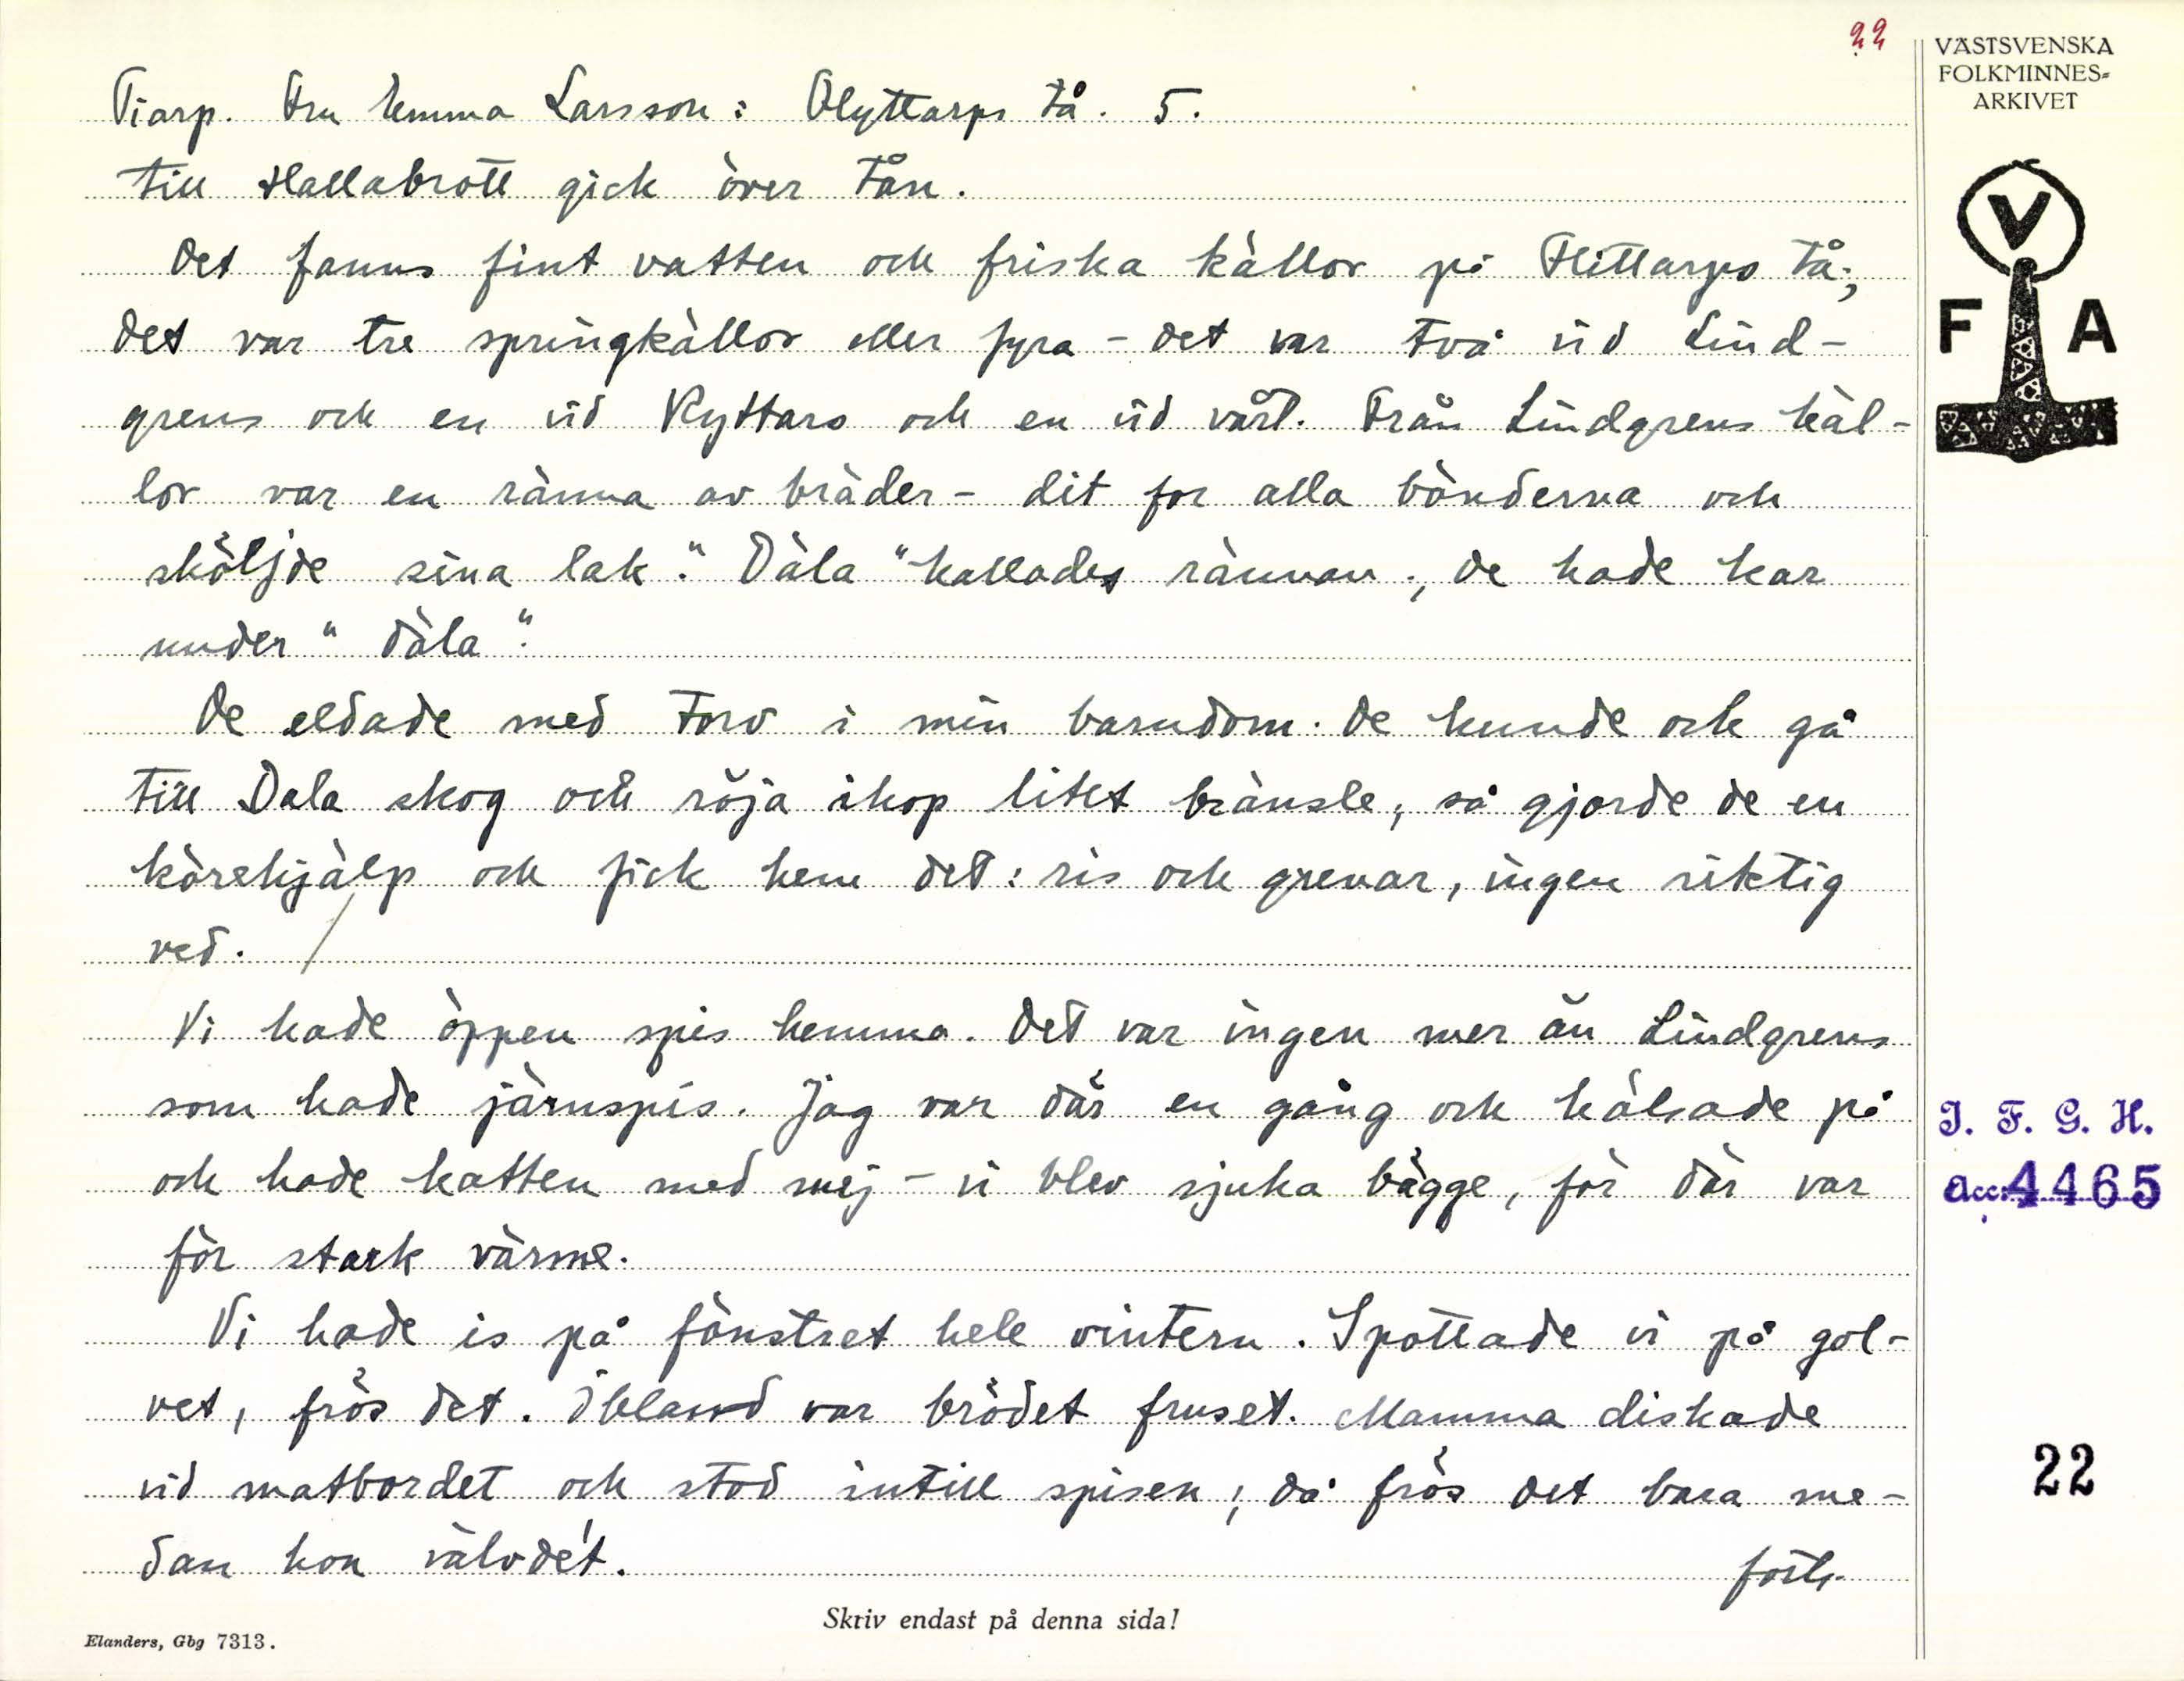 22
VÄSTSVENSKA
FOLKMINNES=
ARKIVET
Tiarp. Fru Emma Larsson: Slyttarps Tå. 5.
till Hallabrott gick över Tån.
Det fanns fint vatten och friska källor på Flittarps Tå;
det var tre springkällor eller fyra - det var två vid Lind-
grens och en vid Ryttars och en vid vårt. Från Lindgrens käl-
lor var en ränna av bräder - dit for alla bönderna och
sköljde sina lak. "Däla" kallades rännan; de hade kar
under "däla".
De eldade med torv i min barndom. De kunde och gå
till Dala skog och röja ihop litet bränsle, så gjorde de en
körehjälp och fick hem det: ris och grenar, ingen riktig
ved.
Vi hade öppen spis hemma. Det var ingen mer än Lindgrens
som hade järnspis. Jag var där en gång och hälsade på
och hade katten med mej - vi blev sjuka bägge, för där var
för stark värme.
Vi hade is på fönstret hele vintern. Spottade vi på gol-
vet, frös det. Ibland var brödet fruset. Mamma diskade
vid matbordet och stod intill spisen; då frös det bara me-
dan hon välvde't.
forts.
V
F A
I. F. G. H.
acc: 4465
22
Skriv endast på denna sida!
Elanders, Gbg 7313.